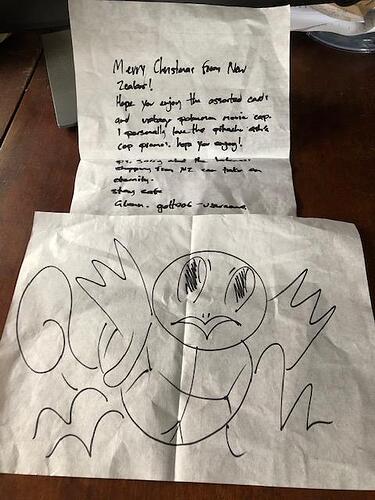 Merry Christmas from New
Zealand!
Hope you enjoy the assorted cards
and vintage pokemon movie cap.
I personally love the pikachu ash's
cap promos. hope you enjoy!
p.s. sorry about the
shipping from NZ can take an
eternity.
stay safe
Glenn. - username